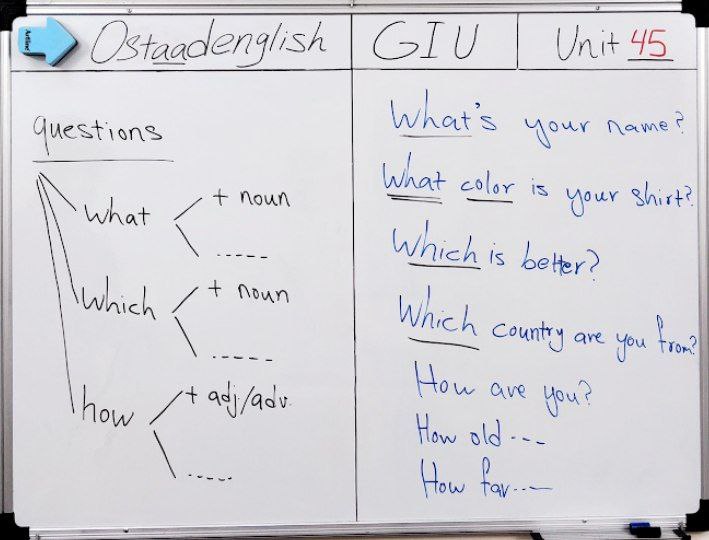 Artline
Ostaadenglish
GIU
Unit 45
questions
What
+ noun
-----
Which
+ noun
-----
how
+ adj/adv.
-----
What's your name?
What color is your shirt?
Which is better?
Which country are you from?
How are you?
How old ---
How far ---